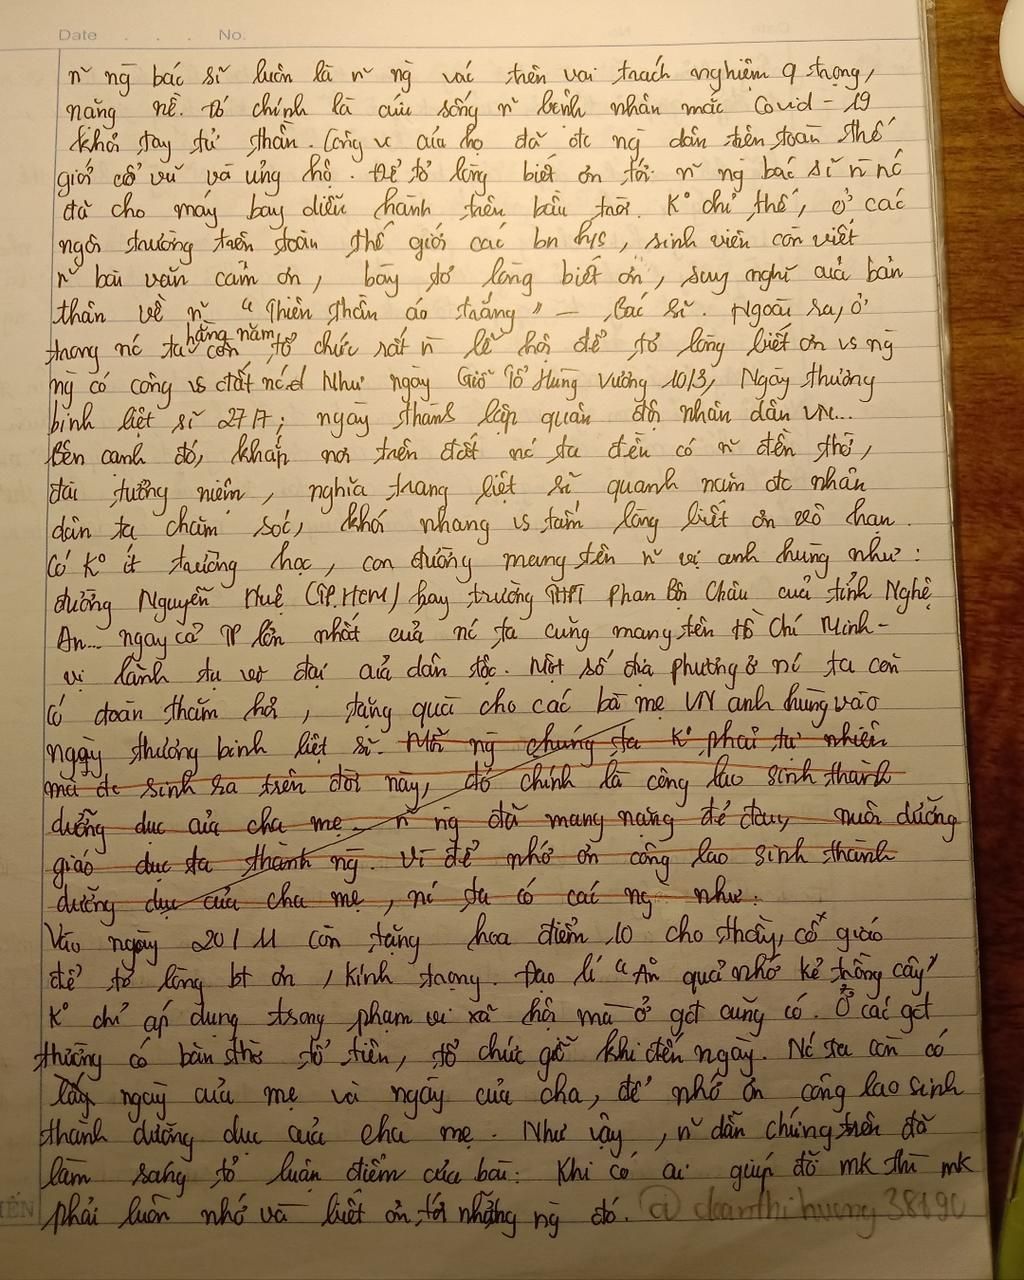 Date . . . No.
n~ ng bác sĩ luôn là n~ ng vác trên vai trách nghiệm q trọng,
nặng nề. Đó chính là cứu sống n~ bệnh nhân mắc Covid - 19
khỏi tay tử thần. Công vc của họ đã đc ng dân trên toàn thế
giới cổ vũ và ủng hộ. Để tỏ lòng biết ơn tới n~ ng bác sĩ n nc
đã cho máy bay diễu hành trên bầu trời. Ko chỉ thế, ở các
ngôi trường trên toàn thế giới các bn h/s, sinh viên còn viết
n~ bài văn cảm ơn, bày tỏ lòng biết ơn, suy nghĩ của bản
thân về n~ "Thiên thần áo trắng" - Bác sĩ. Ngoài ra, ở
trong nc ta hằng năm còn tổ chức rất n lễ hội để tỏ lòng biết ơn vs ng
ng có công vs đất nc. Như ngày Giỗ Tổ Hùng Vương 10/3, Ngày thương
binh liệt sĩ 27/7; ngày thành lập quân đội nhân dân VN...
Bên cạnh đó, khắp nơi trên đất nc ta đều có n~ đền thờ,
đài tưởng niệm, nghĩa trang liệt sĩ quanh năm đc nhân
dân ta chăm sóc, khói nhang vs tấm lòng biết ơn vô hạn.
Có Ko ít trường học, con đường mang tên n~ vị anh hùng như:
đường Nguyễn Huệ (TP.HCM) hay trường THPT Phan Bội Châu của tỉnh Nghệ
An... ngay cả TP lớn nhất của nc ta cũng mang tên Hồ Chí Minh -
vị lãnh tụ vĩ đại của dân tộc. Một số địa phương ở nc ta còn
có đoàn thăm hỏi, tặng quà cho các bà mẹ VN anh hùng vào
ngày thương binh liệt sĩ. Mỗi ng chúng ta Ko phải tự nhiên
mà đc sinh ra trên đời này, đó chính là công lao sinh thành
dưỡng dục của cha mẹ. n~ ng đã mang nặng đẻ đau, nuôi dưỡng
giáo dục ta thành ng. Vì để nhớ ơn công lao sinh thành
dưỡng dục của cha mẹ, nc ta có các ng như:
Vào ngày 20/11 còn tặng hoa điểm 10 cho thầy, cô giáo
để tỏ lòng bt ơn, kính trọng. Đạo lí "Ăn quả nhớ kẻ trồng cây"
Ko chỉ áp dụng trong phạm vi xã hội mà ở gđ cũng có. Ở các gđ
thường có bàn thờ tổ tiên, tổ chức giỗ khi đến ngày. Nc ta còn có
lấy ngày của mẹ và ngày của cha, để nhớ ơn công lao sinh
thành dưỡng dục của cha mẹ. Như vậy, n~ dẫn chứng trên đã
làm sáng tỏ luận điểm của bài: Khi có ai giúp đỡ mk thì mk
phải luôn nhớ và biết ơn tới những ng đó. @doanthihuong38190